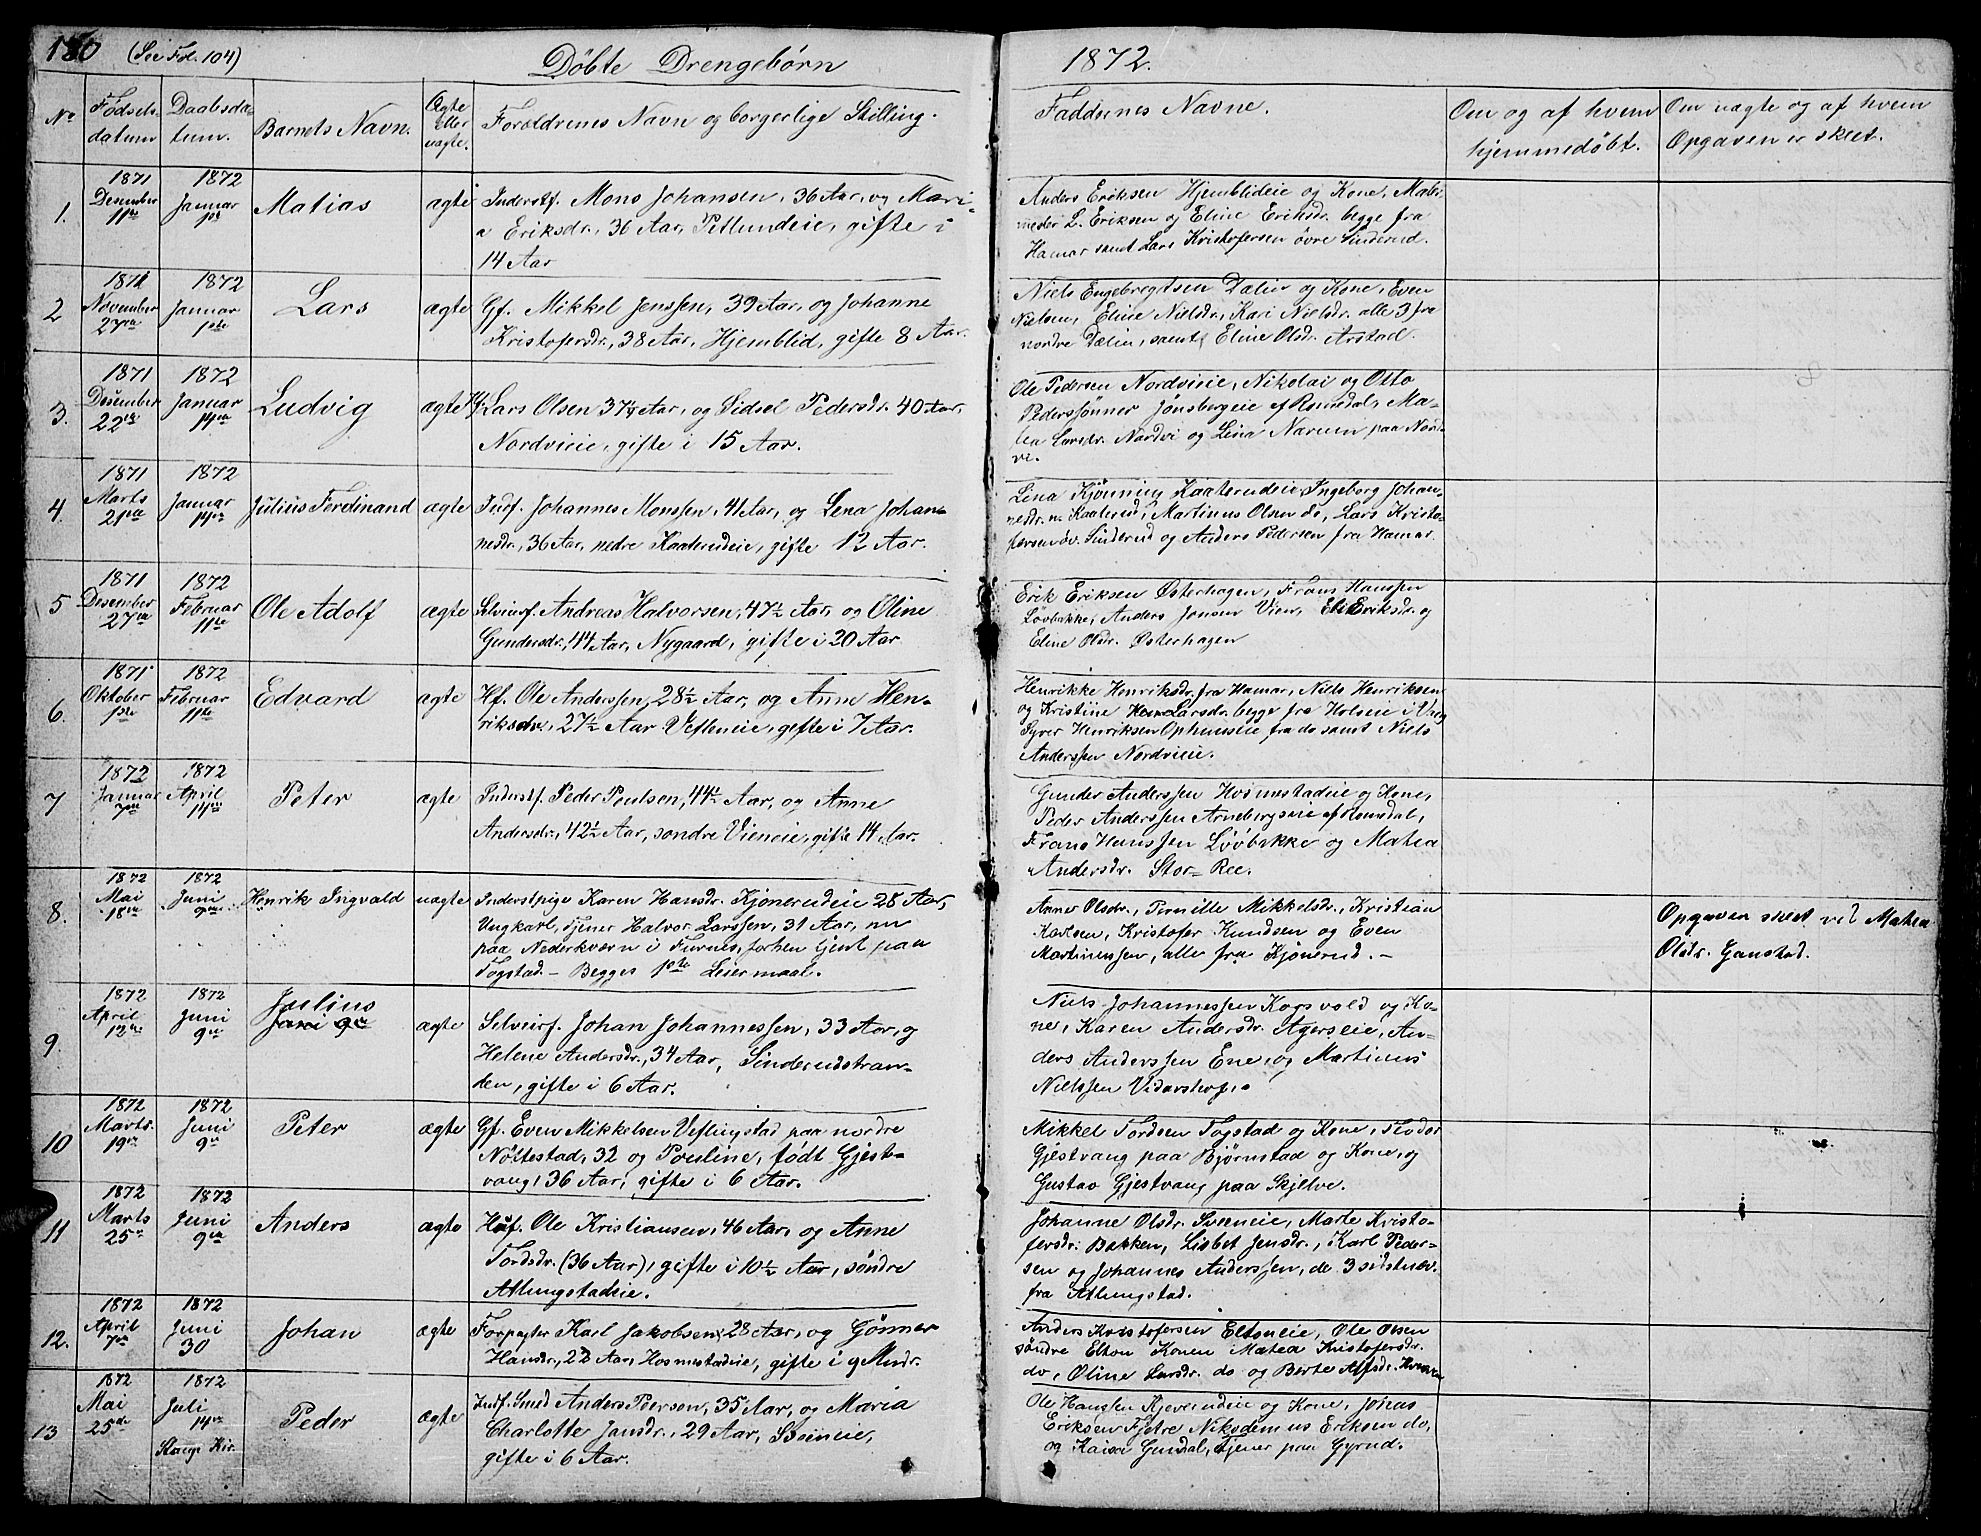 180 (See Fol. 104) Döbte Drengebörn 1872.
No Fødsels-datum Daabsda-tum. Barnets Navn. Ægte eller uægte. Forældrenes Navn og borgerlige Stilling. Faddernes Navne. Om og af hvem hjemmedøbt. Om uægte og af hvem Opgaven er skeet.
1. 1871 Desember 11te 1872 Januar 1ste Matias ægte Inderstf. Mons Johansen, 36 Aar, og Mari-
a Eriksdr., 36 Aar, gifte i
14 Aar
Anders Eriksen Hjemblideie og Kone, Maler-
mester L. Eriksen og Eline Eriksdr. begge fra
Hamar samt Lars Kristofersen övre Sinderud.
2 1871 November 27de 1872 Januar 1ste Lars ægte Gf. Mikkel Jenssen, 39 Aar, og Johanne
Kristofersdr., 38 Aar, Hjemblid, gifte 8 Aar.
Niels Engebregtsen Dælin og Kone, Even
Nielsen, Eline Nielsdr., Kari Nielsdr. alle 3 fra
nordre Dælin, samt Eline Olsdr. Arstad.
3. 1871 Desember 22de 1872 Januar 14de Ludvig ægte Lars Olsen 37½ Aar, og Sidsel Pedersdr. 40 Aar,
Nordvieie, gifte i 15 Aar.
Ole Pedersen Nordvieie, Nikolai og Otto
Pederssönner Jönsbergeie af Romedal, Ma-
tea Larsdr. Nordvi og Lina Narum paa Nord-
vi.
4. 1871 Marts 21de 1872 Januar 14de Julius Ferdinand ægte Indf. Johannes Monssen, 41 Aar, og Lena Johan-
nesdr., 36 Aar, nedre Kaaterudeie, gifte 12 Aar.
Lina Kjönning Kaaterudeie, Ingeborg Johan-
nesdr. n. Kaaterud, Martinus Olsen do, Lars Kristo-
fersen öv. Sinderud og Anders Pedersen fra Hamar.
5 1871 Desember 27de 1872 Februar 11te Ole Adolf ægte Selveierf. Andreas Halvorsen, 47½ Aar, og Oline
Gundersdr., 44 Aar, Nygaard, gifte i 20 Aar
Erik Eriksen Østerhagen, Frans Hanssen
Lövbakke, Anders Jonsen Vien, Eli Eriksdr. og
Eline Olsdr. Østerhagen
6. 1871 Oktober 1ste 1872 Februar 11te Edvard ægte Hf. Ole Anderssen, 28½ Aar, og Anne Hen-
riksdr., 27½ Aar Vesteneie, gifte i 7 Aar.
Henrikke Henriksdr. fra Hamar, Niels Henriksen
og Kristine Larsdr. begge fra Holseie i Vang
Syver Henriksen Ophuuseie fra do samt Niels
Anderssen Nordvieie.
7 1872 Januar 7de 1872 April 14de Peter ægte Inderstf. Peder Poulsen, 44½ Aar, og Anne
Andersdr., 42½ Aar, søndre Vieneie, gifte 14 Aar.
Gunder Anderssen Hosmestadeie og Kone,
Peder Anderssen Arnebergseie af Romedal,
Frans Hanssen LöVbakke og Matea
Andersdr. Stor-Ree.
8. 1872 Mai 18de 1872 Juni 9de Henrik Ingvald uægte Inderstpige Karen Hansdr. Kjönerudeie 28 Aar,
Ungkarl, Tjener Halvor Larssen, 31 Aar, nu
paa Nederkvern i Furnes, forhen tjent paa
Togstad. – Begges 1ste Leiermaal.
Anne Olsdr., Pernille Mikkelsdr., Kristian
Karlsen, Kristofer Knudsen og Even
Martinussen, alle fra Kjönerud. –
Opgaven skeet ved Mathea
Olsdr. Gaustad.
9. 1872 April 12te 1872 Juni 9de Julius
ægte Selveierf. Johan Johannessen, 33 Aar, og
Helene Andersdr., 34 Aar, Sinderudstran-
den, gifte i 6 Aar.
Niels Johannessen Kogsvold og Ko-
ne, Karen Andersdr. Agerseie, An-
ders Anderssen Ene, og Martinus
Nielssen Vidarshof.
10 1872 Marts 19de 1872 Juni 9de Peter ægte Gf. Even Mikkelsen Veflingstad paa nordre
Nöttestad, 32 og Pouline, född Gjest-
vang, 36 Aar, gifte i 6 Aar.
Mikkel Tordsen Togstad og Kone, Teodor
Gjestvang paa Bjørnstad og Kone, og
Gustav Gjestvang paa Skjelve.
11 1872 Marts 25de 1872 Juni 9de Anders ægte Husf. Ole Kristiansen, 46 Aar, og Anne
Tordsdr. (36 Aar), gifte i 10½ Aar, söndre
Atlungstadeie.
Johanne Olsdr. Sveneie, Marte Kristo-
fersdr. Bakken, Lisbet Jensdr., Karl Peder-
sen og Johannes Anderssen, de 3 sidstnæv.
fra Atlungstad.
12. 1872 April 7de 1872 Juni 30 Johan ægte Forpagter Karl Jakobsen, 28 Aar, og Gönner
Hansdr., 22 Aar, Hosmestadeie, gifte i 9 Mndr.
Anders Kristofersen Eltoneie, Ole Olsen
søndre Elton Konen Matea Kristofersdr.
do, Oline Larsdr. do og Berte Alfsdr. Kverne
13 1872 Mai 25de 1872 Juli 14de Stange Kir. Peder ægte Indf. Smed Anders Pederson, 35 Aar, og Maria
Charlotte Jansdr., 29 Aar, Sveneie,
gifte i 6 Aar.
Ole Hanssen Kjeverudeie og Kone, Johas
Eriksen Fjetre, Nikodemus Eriksen do,
og Kaisa Gundal, Tjener paa Gyrud.